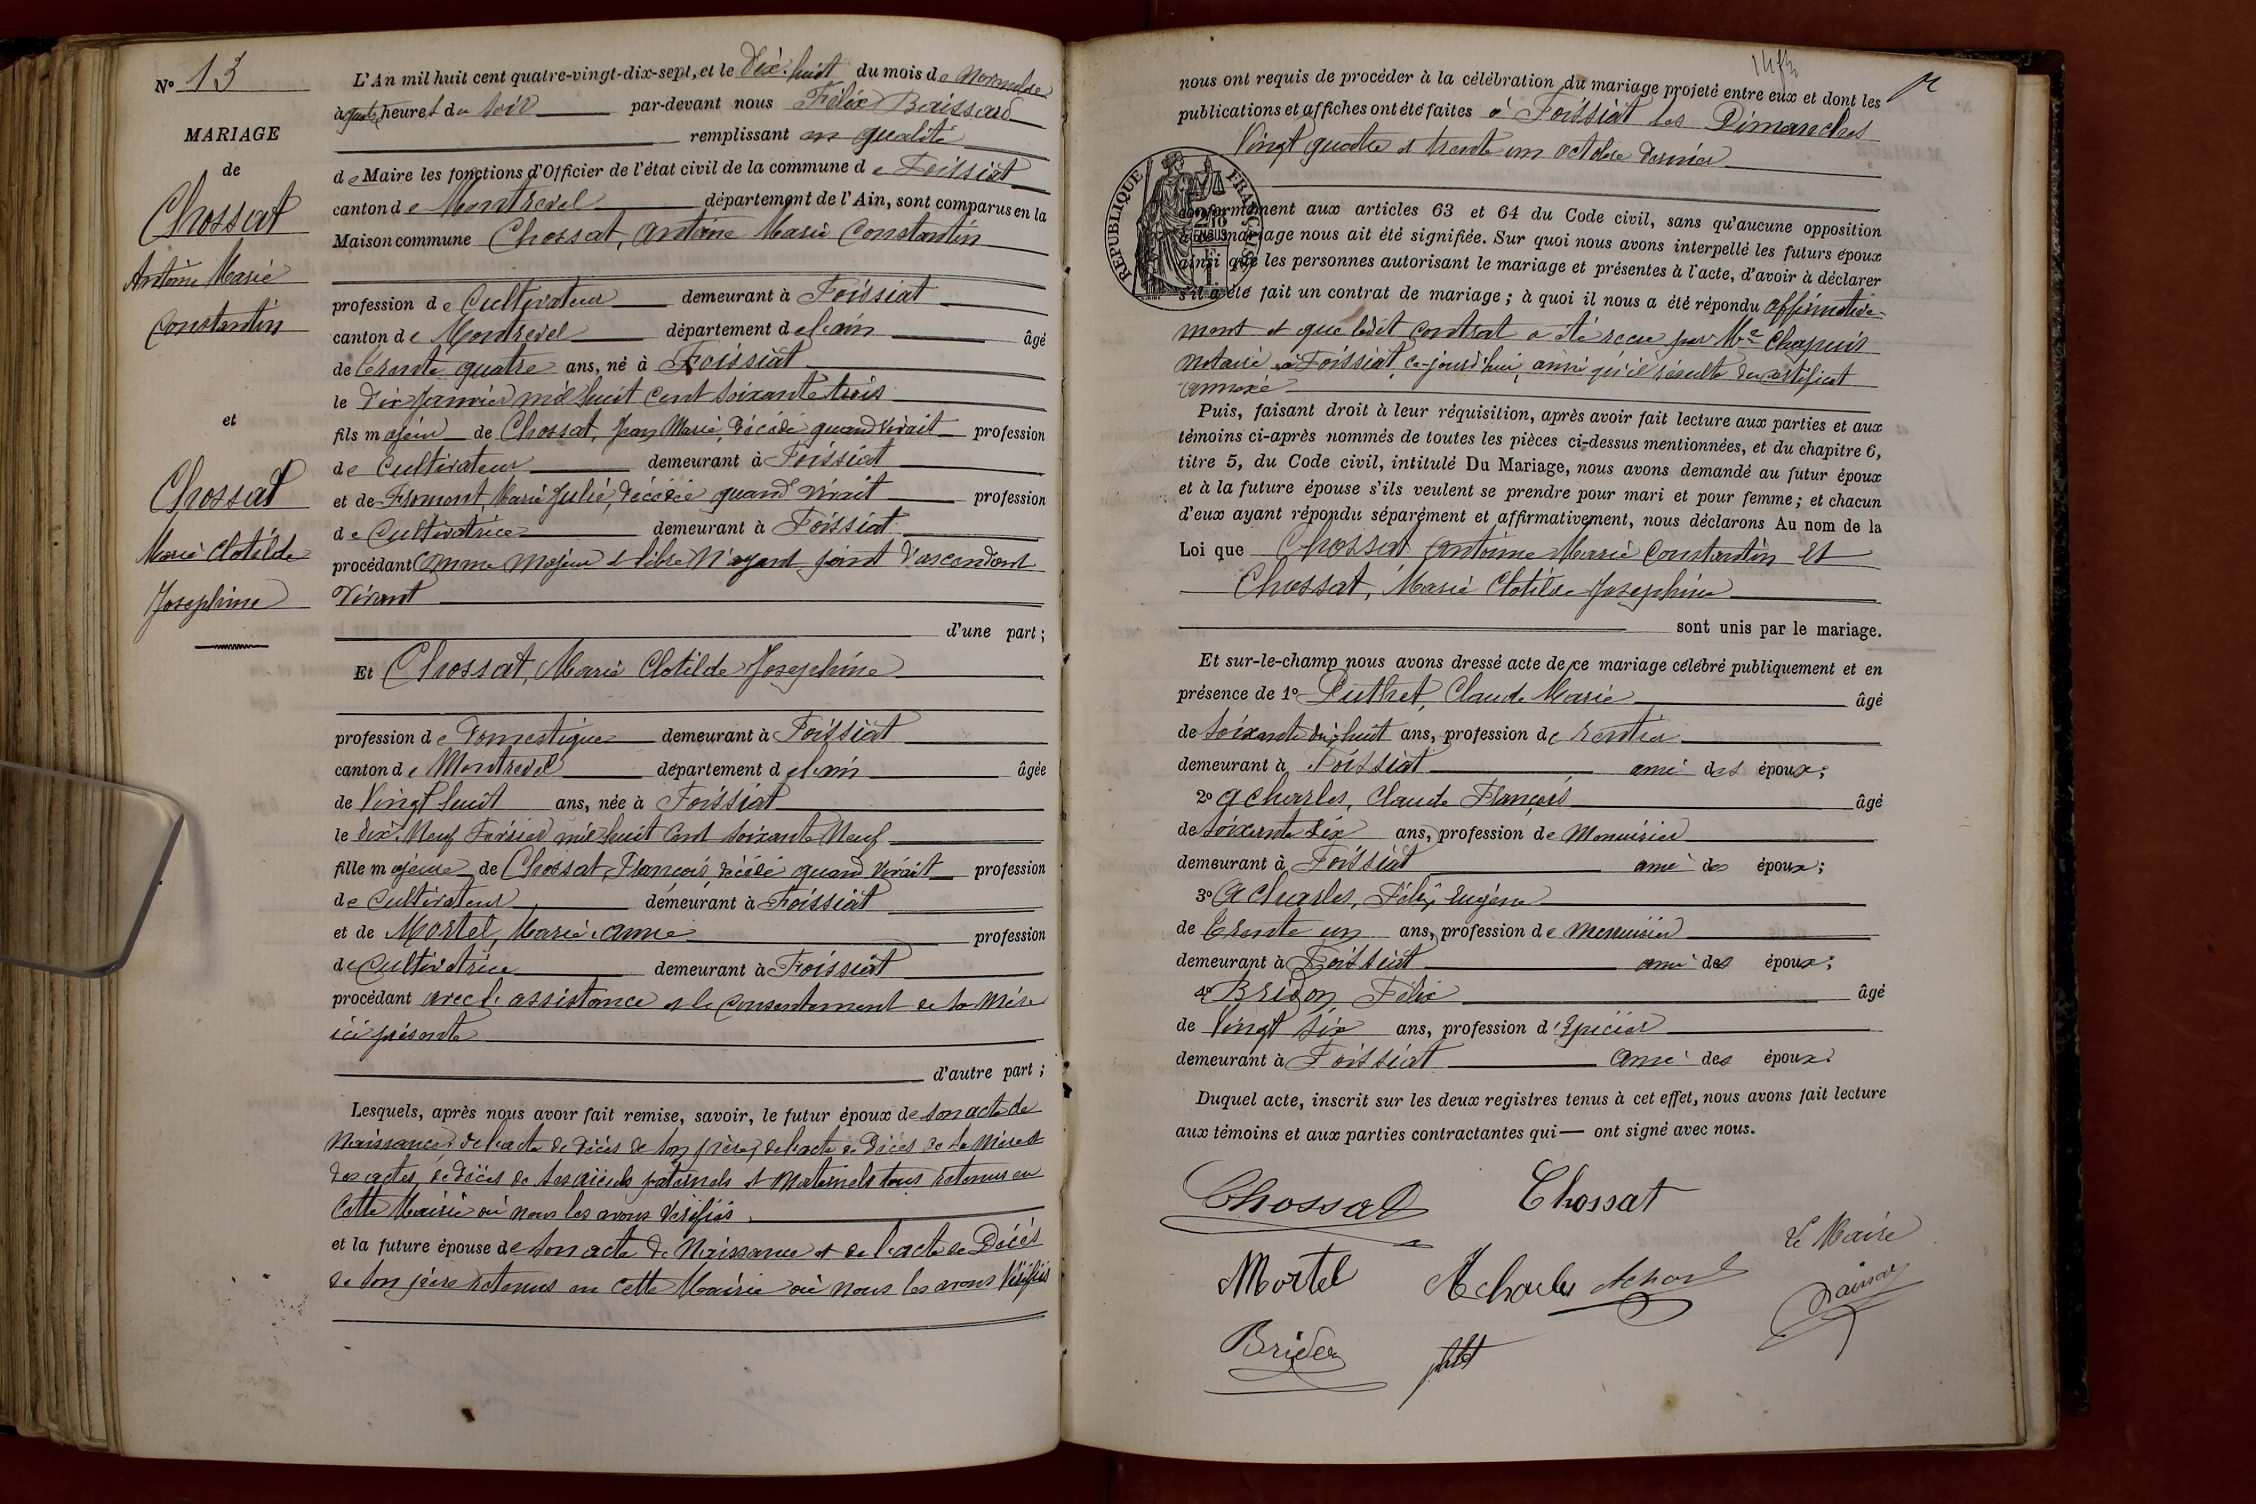 N° 13
MARIAGE
de
Chossat
Antoine Marie
Constantin
et
Chossat
Marie Clotilde
Josephine
L'An mil huit cent quatre-vingt-dix-sept, et le Dix-huit du mois de Novembre
à quatre heures du soir par-devant nous Félix Baissard
remplissant en qualité
de Maire les fonctions d'Officier de l'état civil de la commune de Foissiat
canton de Montrevel département de l'Ain, sont comparus en la
Maison commune Chossat, Antoine Marie Constantin
profession de Cultivateur demeurant à Foissiat
canton de Montrevel département de l'ain âgé
de trente quatre ans, né à Foissiat
le dix Janvier mil huit cent soixante trois
fils majeur de Chossat, Jean Marie, décédé quand vivait profession
de Cultivateur demeurant à Foissiat
et de Fromont, Marie Julie, décédée quand vivait profession
de Cultivatrice demeurant à Foissiat
procédant comme majeur et libre n'ayant point d'ascendant
vivant
d'une part ;
Et Chossat, Marie Clotilde Josephine
profession de Domestique demeurant à Foissiat
canton de Montrevel département de l'ain âgée
de Vingt huit ans, née à Foissiat
le dix-Neuf Février mil huit cent soixante Neuf
fille majeure de Chossat, François décédé quand vivait profession
de Cultivateur demeurant à Foissiat
et de Mortel, Marie-anne profession
de Cultivatrice demeurant à Foissiat
procédant avec l'assistance et le consentement de sa Mère
ici présente
d'autre part ;
Lesquels, après nous avoir fait remise, savoir, le futur époux de son acte de
Naissance, de l'acte de décès de son père, de l'acte de Décès de sa Mère et
des actes de décès de ses aïeuls paternels et Maternels tous retenus en
cette Mairie où nous les avons vérifiés
et la future épouse de son acte de Naissance et de l'acte de Décès
de son père retenus en cette Mairie où nous les avons Vérifiés
nous ont requis de procéder à la célébration du mariage projeté entre eux et dont les
publications et affiches ont été faites à Foissiat les Dimanches
Vingt quatre et trente un octobre dernier
RÉPUBLIQUE FRANÇAISE
conformément aux articles 63 et 64 du Code civil, sans qu'aucune opposition
à ce mariage nous ait été signifiée. Sur quoi nous avons interpellé les futurs époux
ainsi que les personnes autorisant le mariage et présentes à l'acte, d'avoir à déclarer
s'il a été fait un contrat de mariage ; à quoi il nous a été répondu affirmative-
ment et que ledit contrat a été reçu par Me Chapuis
Notaire à Foissiat, ce-jourd'hui, ainsi qu'il résulte du certificat
annexé
Puis, faisant droit à leur réquisition, après avoir fait lecture aux parties et aux
témoins ci-après nommés de toutes les pièces ci-dessus mentionnées, et du chapitre 6,
titre 5, du Code civil, intitulé Du Mariage, nous avons demandé au futur époux
et à la future épouse s'ils veulent se prendre pour mari et pour femme ; et chacun
d'eux ayant répondu séparément et affirmativement, nous déclarons Au nom de la
Loi que Chossat Antoine Marie Constantin Et
Chossat, Marie Clotilde Josephine
sont unis par le mariage.
Et sur-le-champ nous avons dressé acte de ce mariage célébré publiquement et en
présence de 1° Puthet, Claude Marie âgé
de soixante dix huit ans, profession de rentier
demeurant à Foissiat ami des époux ;
2° Acharles, Claude François âgé
de soixante six ans, profession de Menuisier
demeurant à Foissiat ami des époux ;
3° Acharles, Félix Eugène
de trente un ans, profession de menuisier
demeurant à Foissiat ami des époux ;
4° Bridon Félix âgé
de Vingt six ans, profession d'Epicier
demeurant à Foissiat ami des époux.
Duquel acte, inscrit sur les deux registres tenus à cet effet, nous avons fait lecture
aux témoins et aux parties contractantes qui — ont signé avec nous.
Chossat Chossat
Le Maire
Mortel Acharles